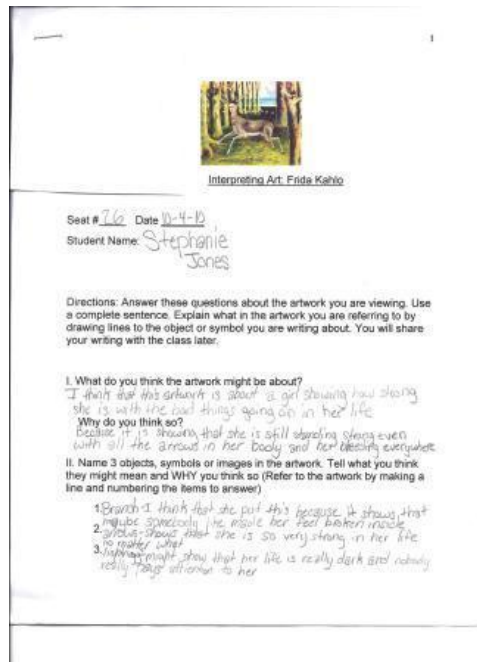 1
Interpreting Art: Frida Kahlo
Seat # 26 Date 10-4-10
Student Name: Stephanie
Jones
Directions: Answer these questions about the artwork you are viewing. Use
a complete sentence. Explain what in the artwork you are referring to by
drawing lines to the object or symbol you are writing about. You will share
your writing with the class later.
I. What do you think the artwork might be about?
I think that this artwork is about a girl showing how strong
she is with the bad things going on in her life
Why do you think so?
Because it is showing that she is still standing strong even
with all the arrows in her body and her bleeding everywhere
II. Name 3 objects, symbols or images in the artwork. Tell what you think
they might mean and WHY you think so (Refer to the artwork by making a
line and numbering the items to answer)
1. Branch-I think that she put this because it shows that
maybe somebody made her feel broken inside
2. arrows-shows that she is so very strong in her life
no matter what
3. lightning-might show that her life is really dark and nobody
really pays attention to her